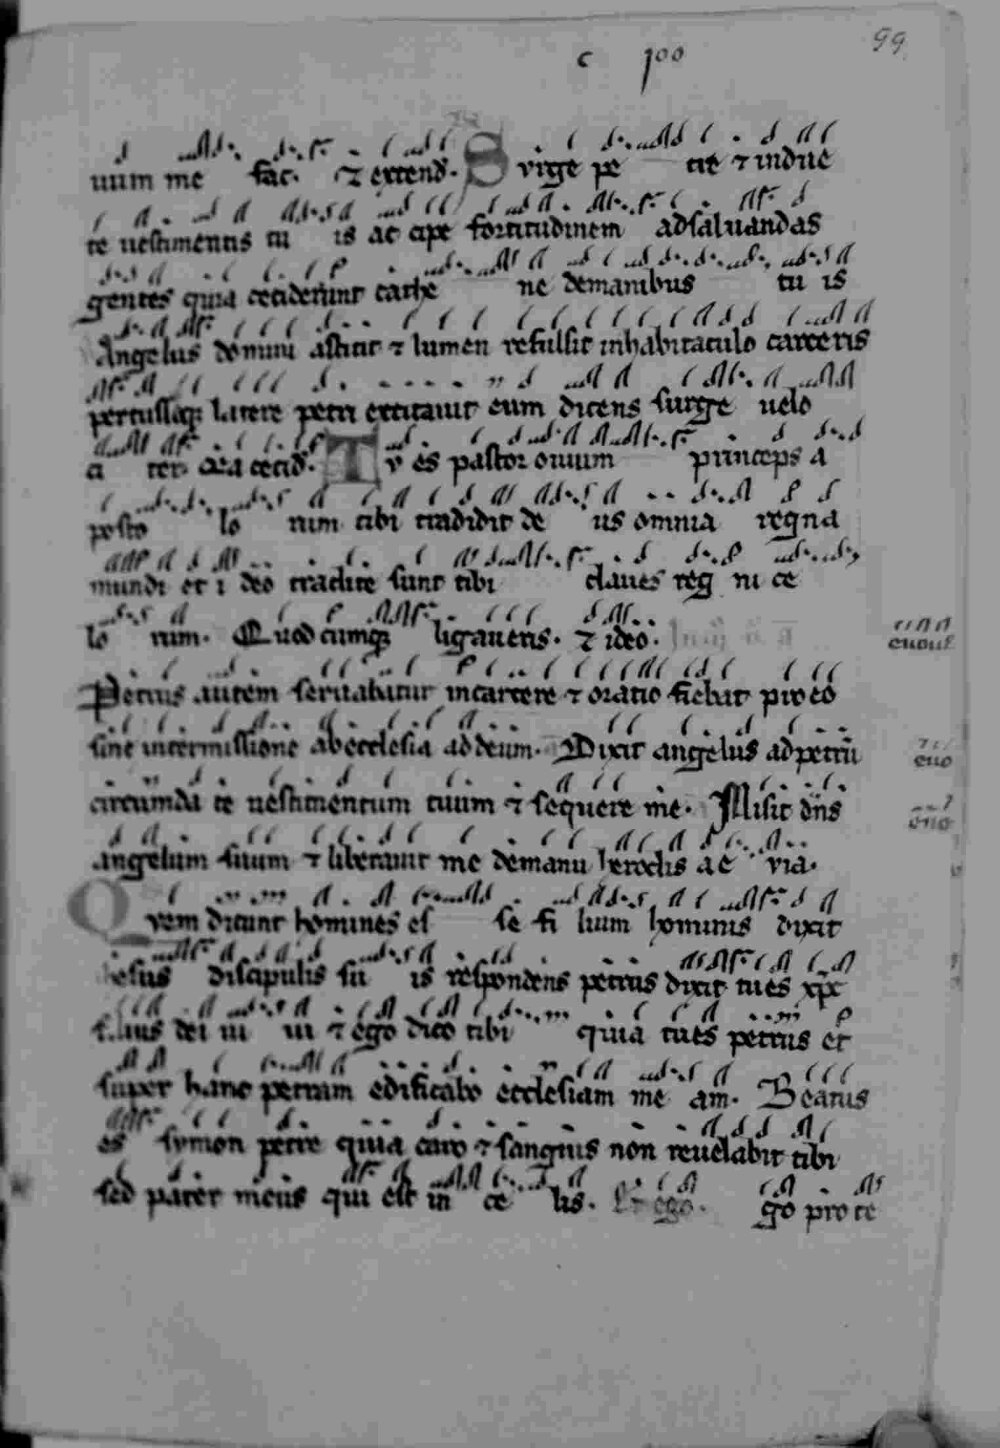 99
c 100
uum me fac. ⁊ extend. Svrge pe tre ⁊ indue
te uestimentis tu is ac cipe fortitudinem adsaluandas
gentes quia ceciderunt cathe ne demanibus tu is
Angelus domini astitit ⁊ lumen refulsit inhabitaculo carceris
percussoq; latere petri excitauit eum dicens surge uelo
ci ter. Q̃a cecid. Tv es pastor ouium princeps a
posto lo rum tibi tradidit de us omnia regna
mundi et i deo tradite sunt tibi claues reg ni ce
lo rum. Quodcumq; ligaueris. ⁊ ideo.
euouae
Petrus autem seruabatur incarcere ⁊ oratio fiebat pro eo
sine intermissione abecclesia addeum. Dixit angelus adpetrũ
euo
circumda te uestimentum tuum ⁊ sequere me. Misit dñs
angelum suum ⁊ liberauit me demanu herodis ae via.
Qvem dicunt homines es se fi lium hominis dixit
iesus discipulis su is respondens petrus dixit tu es xp̃c
filius dei ui ui ⁊ ego dico tibi quia tu es petrus et
super hanc petram edificabo ecclesiam me am. Beatus
es symon petre quia caro ⁊ sanguis non reuelabit tibi
sed pater meus qui est in ce lis. Et ego. go pro te